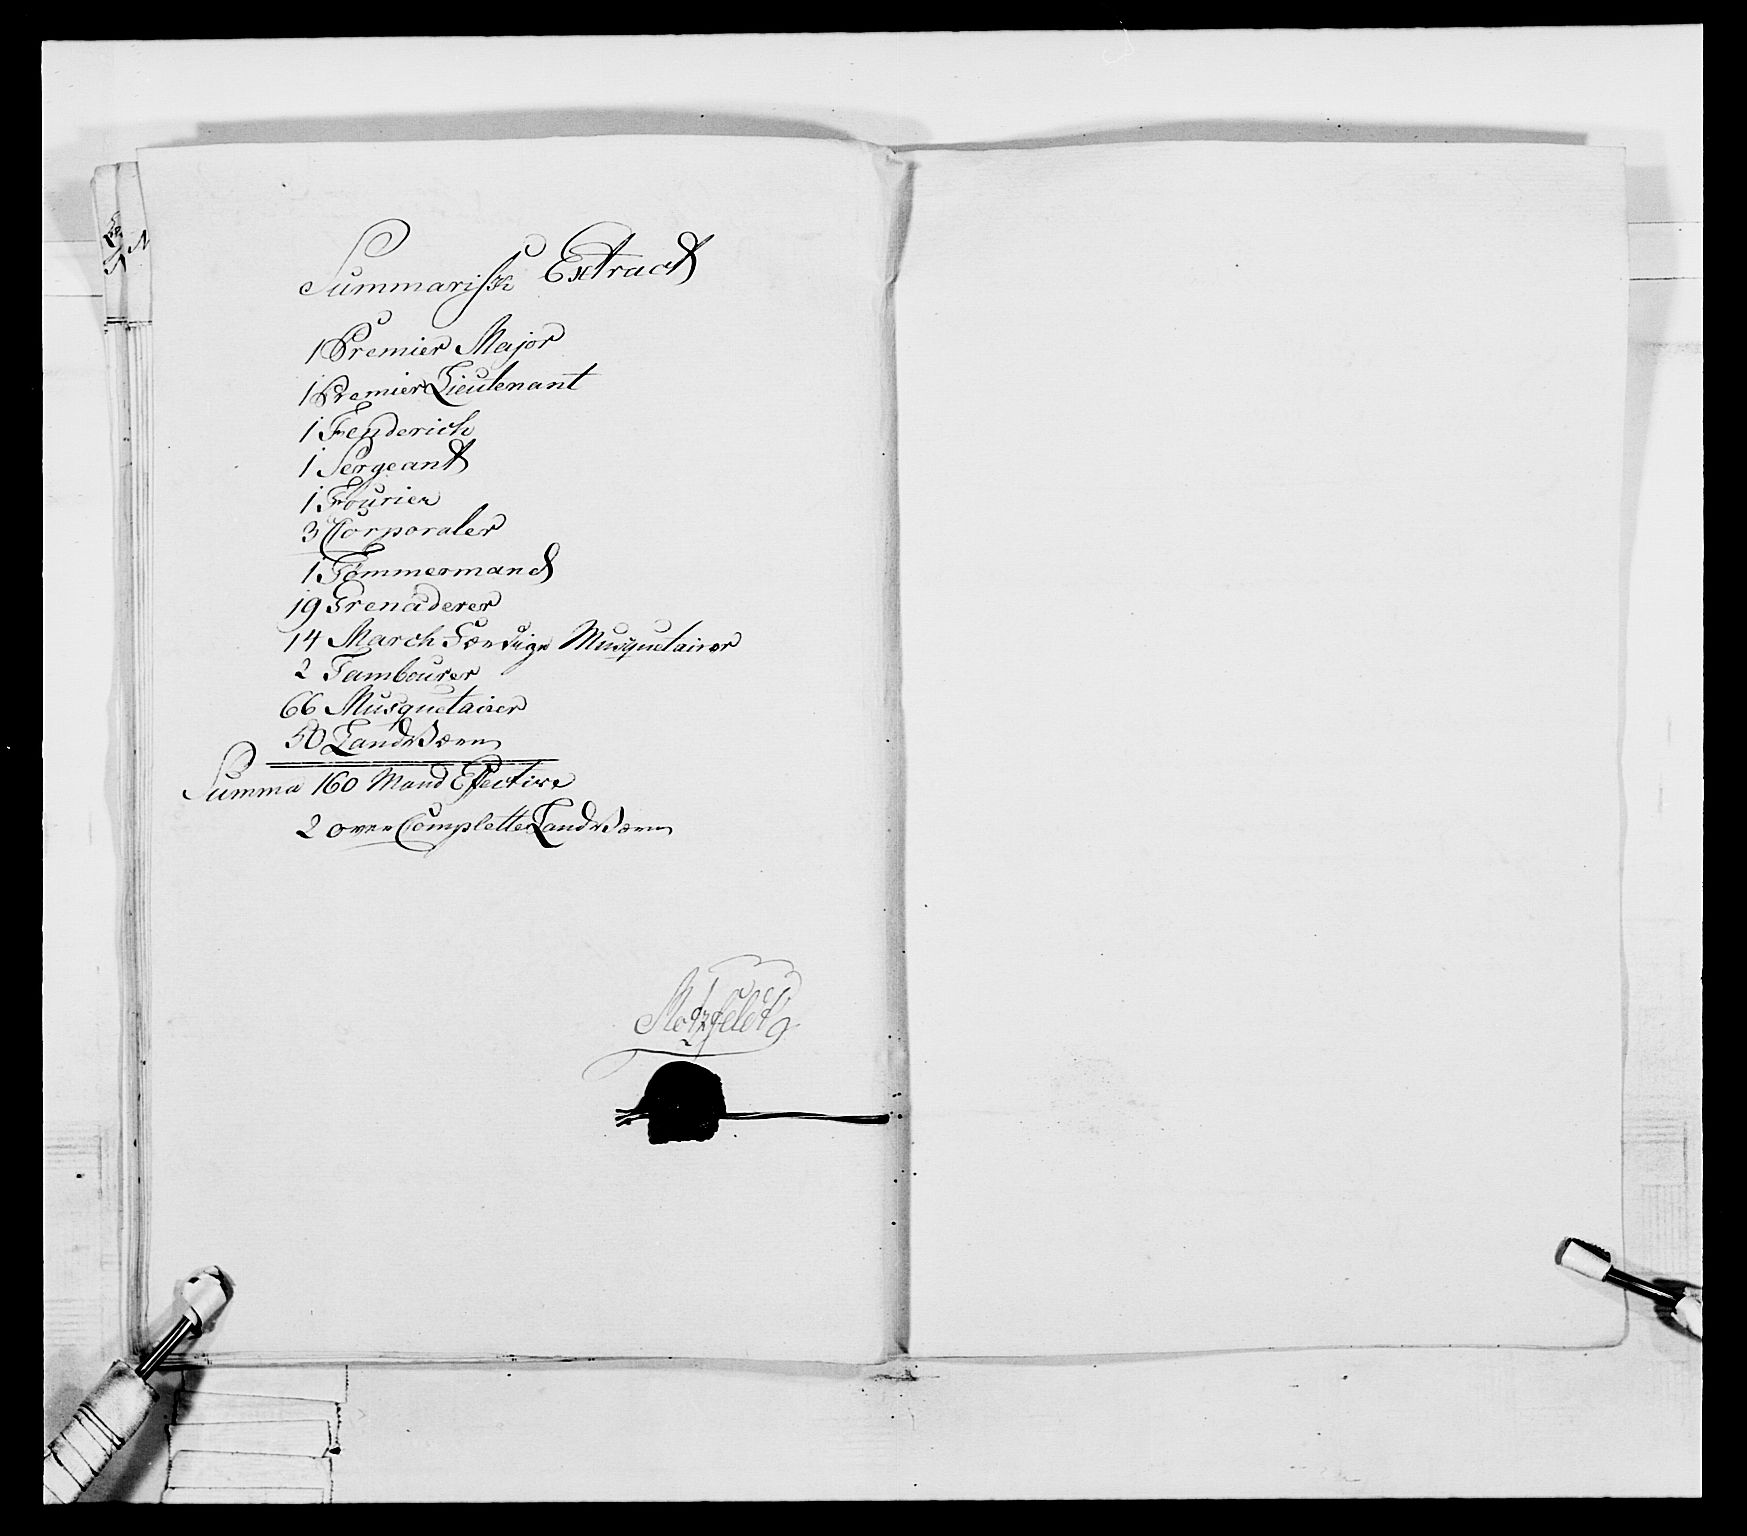 Summariske Extract
1 Premier Major
1 Premier Lieutenant
1 Fenderich
1 Sergeant
1 Fourier
3 Corporaler
1 Tømmermand
19 Grenaderer
14 March Færdige Musquetairer
2 Tambourer
66 Musquetairer
50 Landværn
Summa 160 Mand Effective
2 over Complette Landværn
Motzfeldt